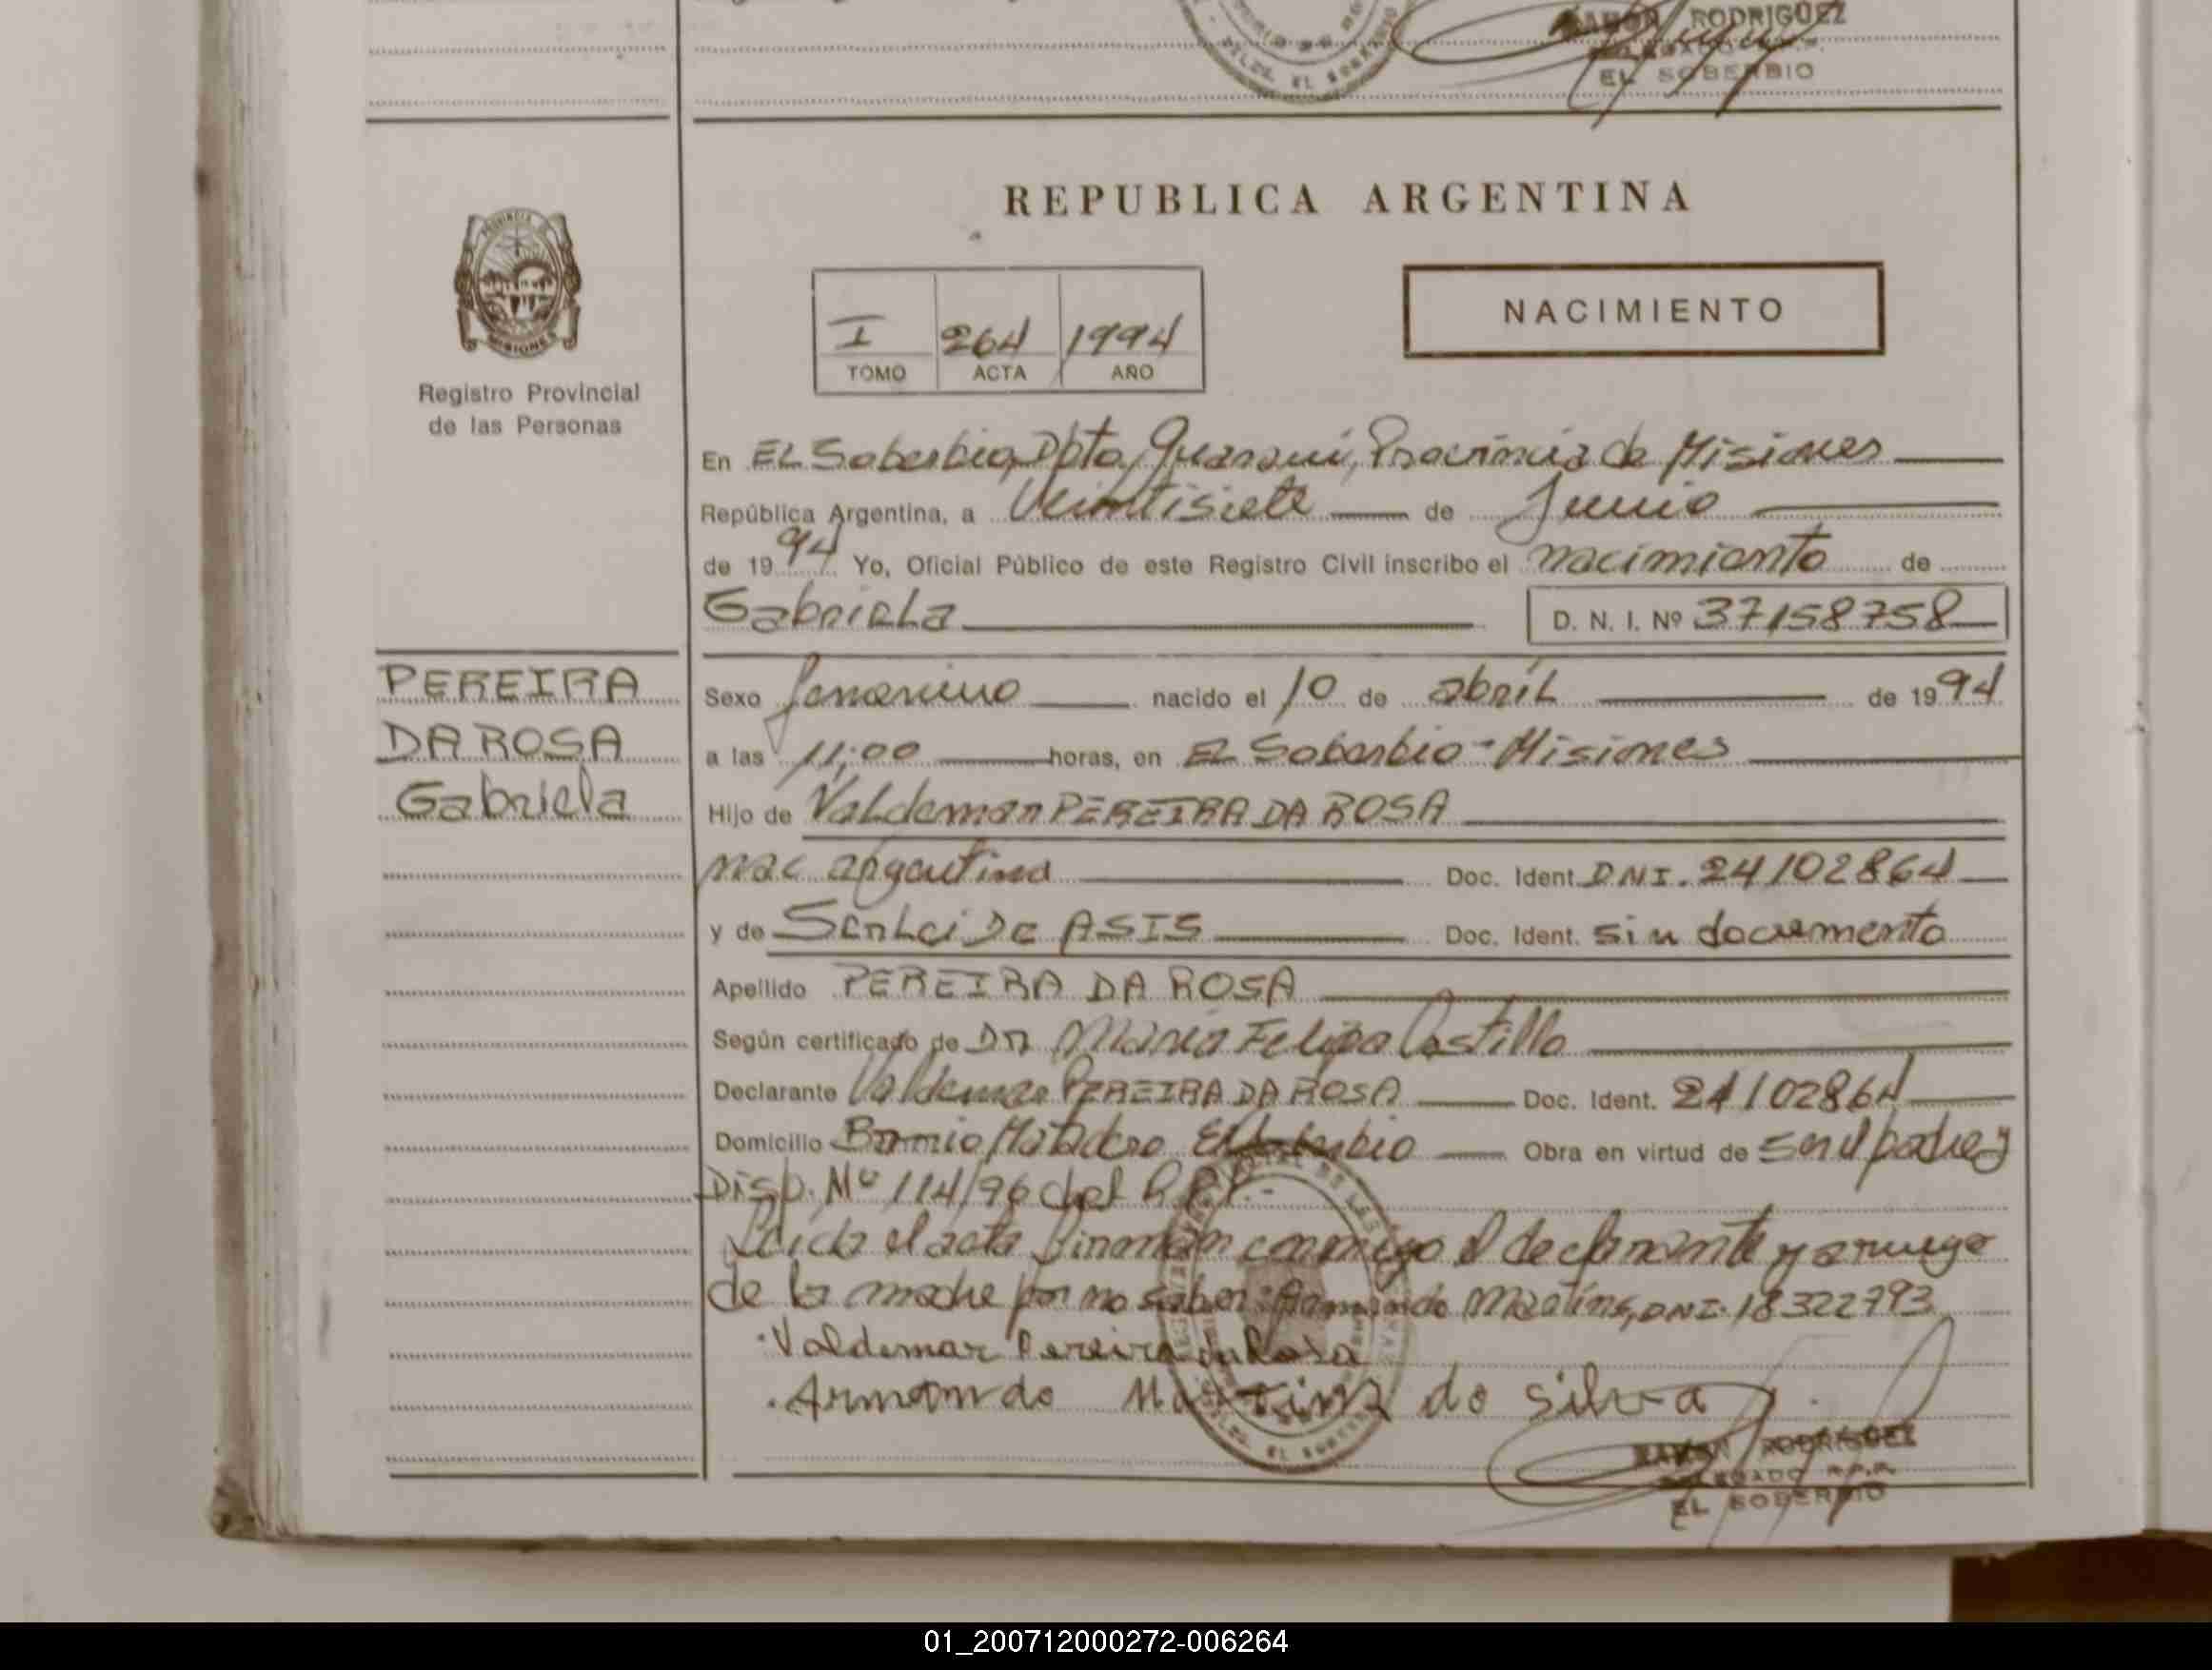 RAMON RODRIGUEZ
EL SOBERBIO
REPUBLICA ARGENTINA
PROVINCIA DE
MISIONES
Registro Provincial
de las Personas
I 264 1994
TOMO ACTA AÑO
NACIMIENTO
En EL Soberbio, Dpto, Guaraní, Provincia de Misiones
República Argentina, a Veintisiete de Junio
de 1994 Yo, Oficial Público de este Registro Civil inscribo el nacimiento de
Gabriela D. N. I. Nº 37158758
PEREIRA
DA ROSA
Gabriela
Sexo femenino nacido el 10 de abril de 1994
a las 11:00 horas, en El Soberbio - Misiones
Hijo de Valdemar PEREIRA DA ROSA
nac argentina Doc. Ident. DNI. 24102864
y de Serlei De ASIS Doc. Ident. sin documento
Apellido PEREIRA DA ROSA
Según certificado de Dr Mario Felipe Castillo
Declarante Valdemar PEREIRA DA ROSA Doc. Ident. 24102864
Domicilio Barrio Matadero El Soberbio Obra en virtud de ser el padre y
Disp. Nº 114/96 del R.P.P.-
Leída el acta firman conmigo el declarante y a ruego
de la madre por no saber: Armando Martins, DNI. 18322793
Valdemar Pereira da Rosa
Armando Martins do Silva
RAMON RODRIGUEZ
DELEGADO R.P.P.
EL SOBERBIO
01_200712000272-006264